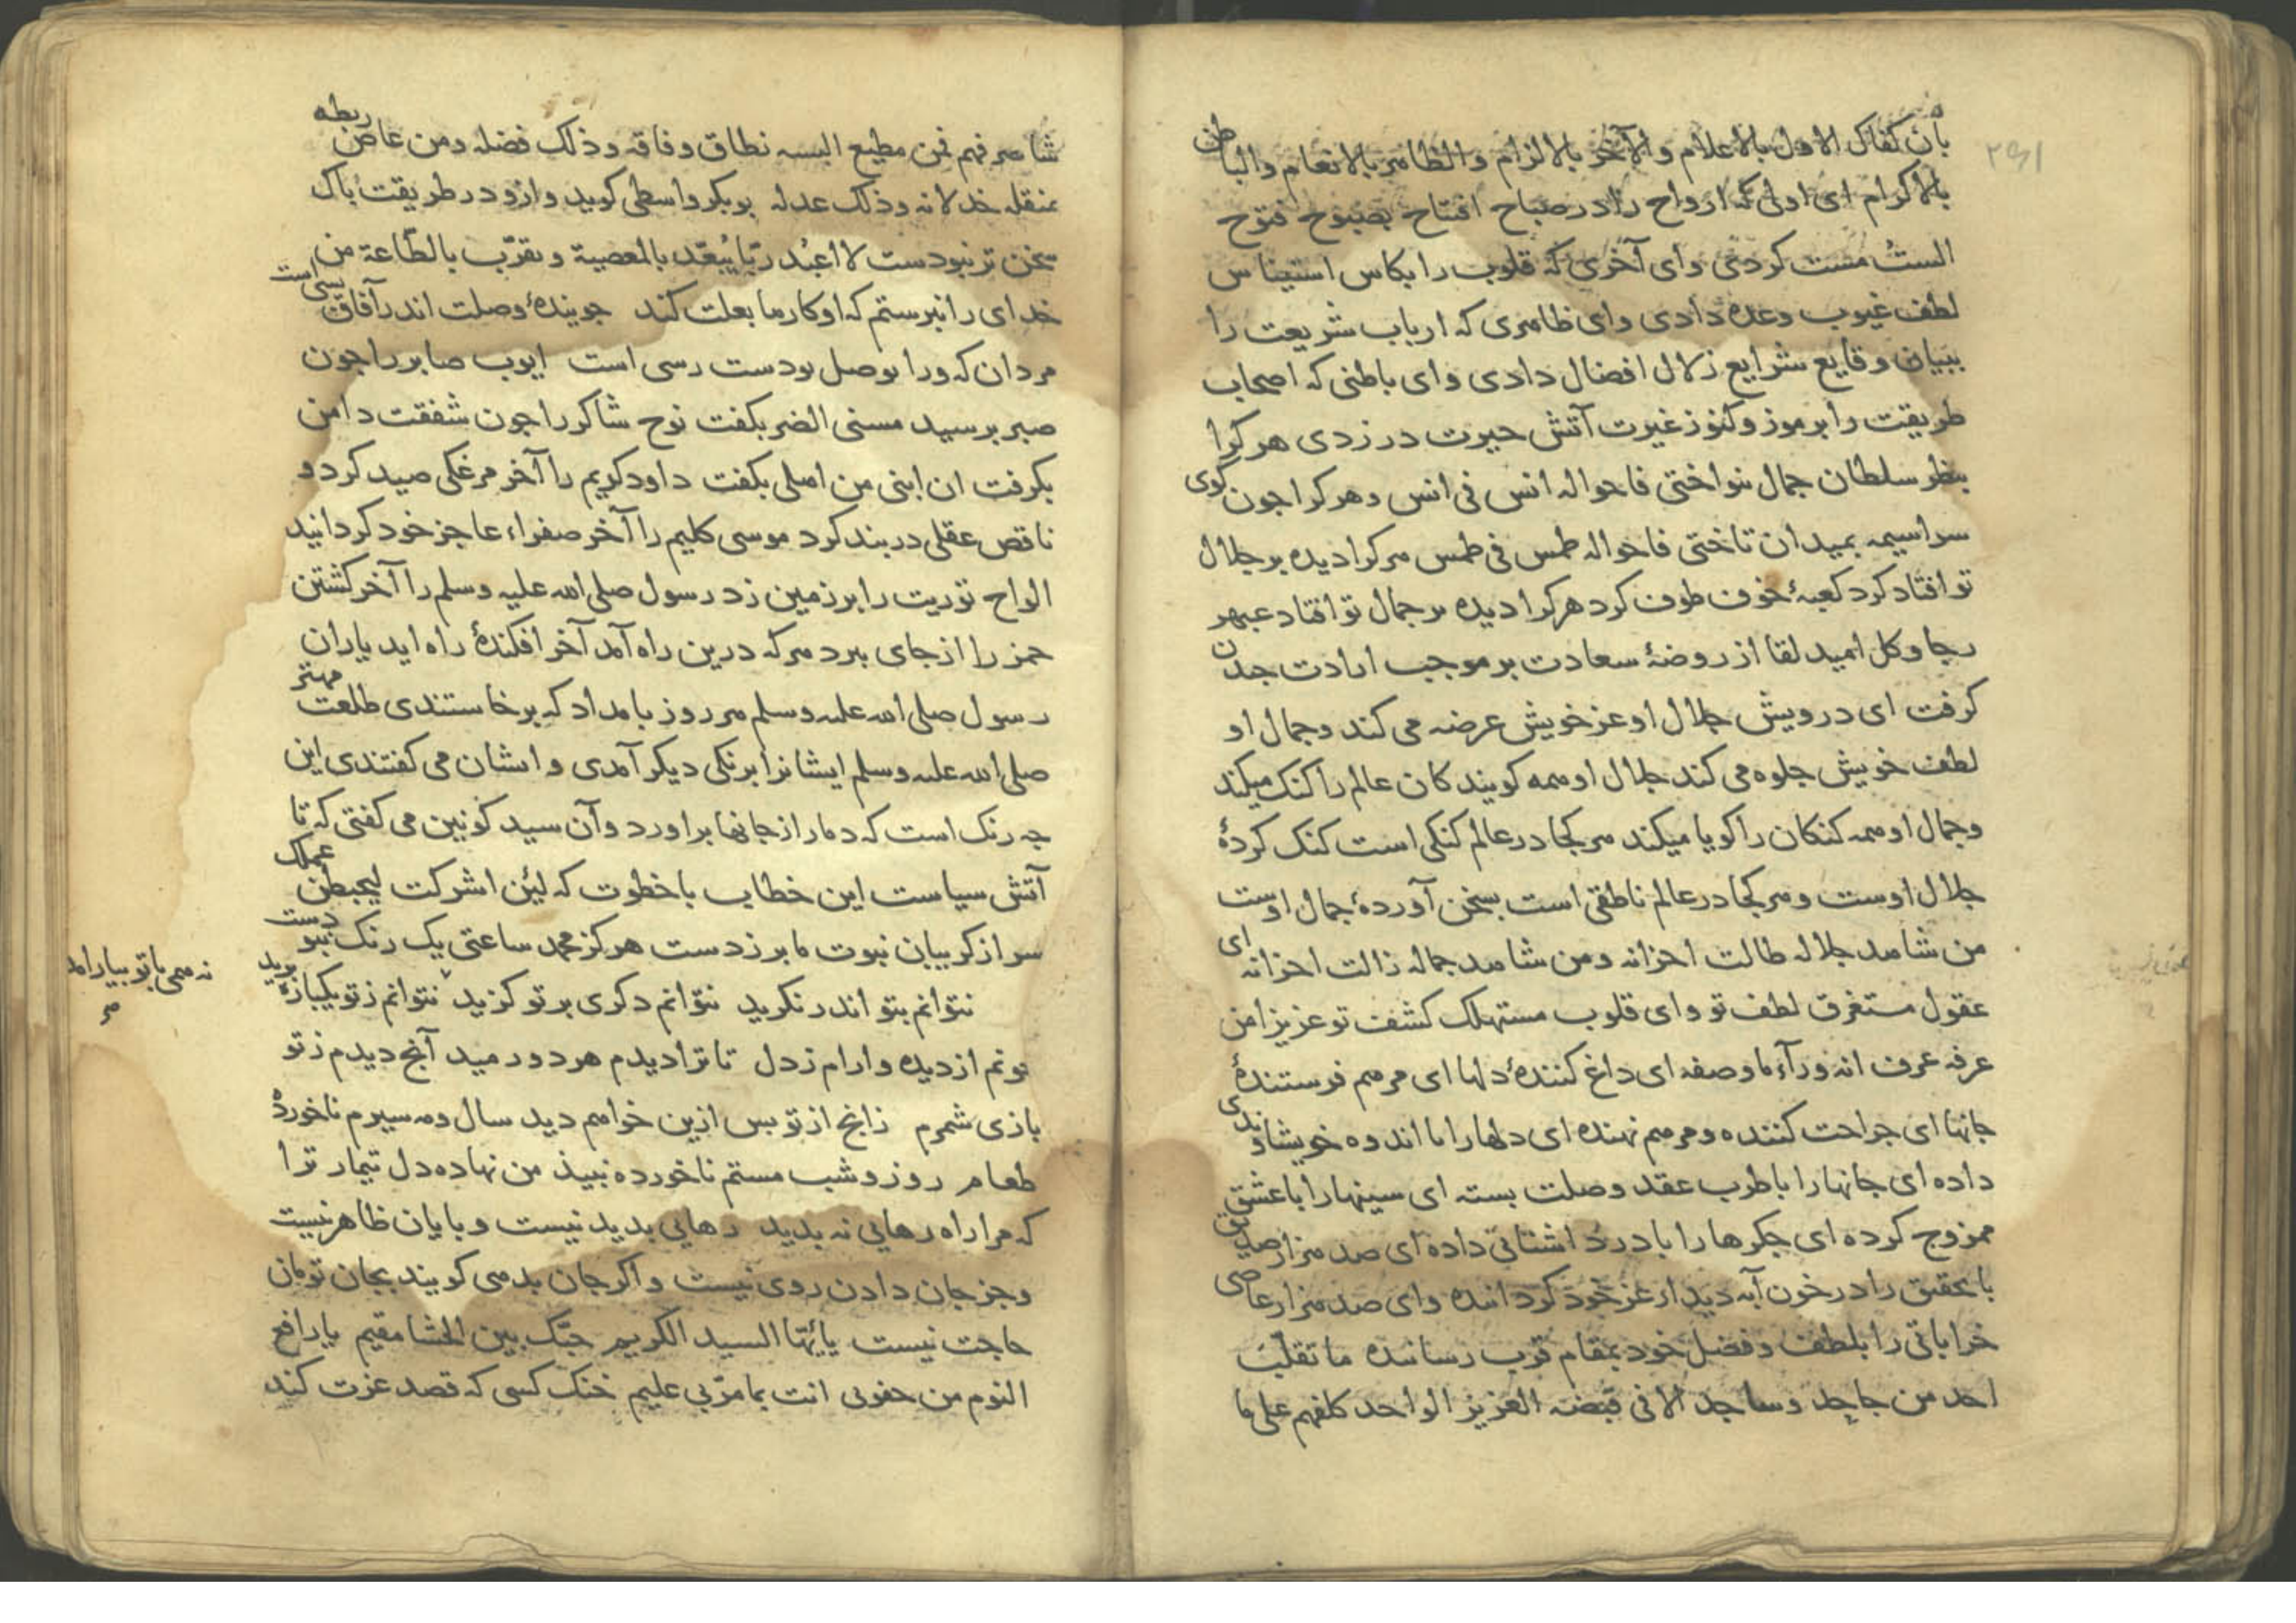 بان کفاک الاول بالاعلام والآخر بالالزام والظاهر بالانعام والباطن
بالاکرام ای اولی که ارواح را در صباح افتتاح بصبوح فتوح
الست مست کردی وای آخری که قلوب را بکاس استیناس
لطف غیوب وعده دادی وای ظاهری که ارباب شریعت را
ببیان وقایع شرایع زلال افضال دادی وای باطنی که اصحاب
طریقت را برموز وکنوز غیرت آتش حیرت در زدی هرکرا
بنظر سلطان جمال بنواختی فاحواله انس فی انس وهرکرا جون کوی
سراسیمه بمیدان تاختی فاحواله طمس فی طمس هرکرا دیده بر جلال
تو افتاد کرد کعبهٔ خوف طوف کرد هرکرا دیده بر جمال تو افتاد عبهر
رجا وکل امید لقا از روضهٔ سعادت بر موجب ارادت جدن
کرفت ای درویش جلال او عز خویش عرضه می کند وجمال او
لطف خویش جلوه می کند جلال او همه کویندکان عالم را کنک میکند
وجمال او همه کنکان را کویا میکند هرکجا در عالم کنکی است کنک کردهٔ
جلال اوست وهرکجا در عالم ناطقی است بسخن آوردهٔ جمال اوست
من شاهد جلاله طالت احزانه ومن شاهد جماله زالت احزانه ای
عقول مستغرق لطف تو وای قلوب مستهلک کشف تو عزیزا من
عرفه عرف انه ورآء ما وصفه ای داغ کنندهٔ دلها ای مرهم فرستندهٔ
جانها ای جراحت کننده ومرهم نهنده ای دلها را با اندوه خویشاوندی
داده ای جانها را با طرب عقد وصلت بسته ای سینها را با عشق
ممزوج کرده ای جکرها را با درد اشنائی داده ای صد هزار صدیق
با تحقیق را در خون آبه دیدار عز خود کردانیده وای صد هزار عاصی
خراباتی را بلطف وفضل خود بمقام قرب رسانیده ما تقلب
احد من جاحد وساجد الا فی قبضة العزیز الواحد کلفهم علی ما
شا صرفهم فمن مطیع البسه نطاق وفاقه وذلک فضله ومن عاص ربطه
بمنقله خذلانه وذلک عدله بوبکر واسطی کوید وازو در طریقت باک
سخن تر نبودست لا اعبد ربّا یُبعّد بالمعصیة ویقرّب بالطّاعة من
خدای را نبرستم که او کار ما بعلت کند جویندهٔ وصلت اندر آفاق بسی است
مردان که ورا بوصل بو دست رسی است ایوب صابر را جون
صبر برسید مسنی الضر بکفت نوح شاکر را جون شفقت دامن
بکرفت ان ابنی من اهلی بکفت داود کریم را آخر مرغکی صید کرد و
ناقص عقلی در بند کرد موسی کلیم را آخر صفراء عاجز خود کردانید
الواح توریت را بر زمین زد رسول صلی الله علیه وسلم را آخر کشتن
حمزه را از جای ببرد هرکه درین راه آمد آخر افکندهٔ راه اید یاران
رسول صلی الله علیه وسلم هر روز بامداد که برخاستندی طلعت مهتر
صلی الله علیه وسلم ایشانرا برنکی دیکر آمدی وایشان می کفتندی این
جه رنک است که دمار از جانها براورد وآن سید کونین می کفتی که تا
آتش سیاست این خطاب با خطوت که لئن اشرکت لیحبطن عملک
سر از کریبان نبوت ما بر زدست هرکز محمد ساعتی یک رنک نبودست
نتوانم بتو اندر نکرید نتوانم دکری بر تو کزید نتوانم ز تو یکباره برید
نه همی با تو بیارامد
بوتم از دیده وارام ز دل تا ترا دیدم هر دو رمید آنج دیدم ز تو
بازی شمرم زانج از تو بس ازین خواهم دید سال ومه سیرم ناخوردهٔ
طعام روز وشب مستم ناخورده نبیذ من نهاده دل تیمار ترا
که مرا راه رهایی نه بدید رهایی بدید نیست وبایان ظاهر نیست
وجز جان دادن روی نیست واکر جان بدهی کویند بجان تومان
حاجت نیست یا ایّها السید الکریم حبّک بین الحشا مقیم یا رافع
النوم من جفونی انت بما مرّ بی علیم خنک کسی که قصد عزت کند